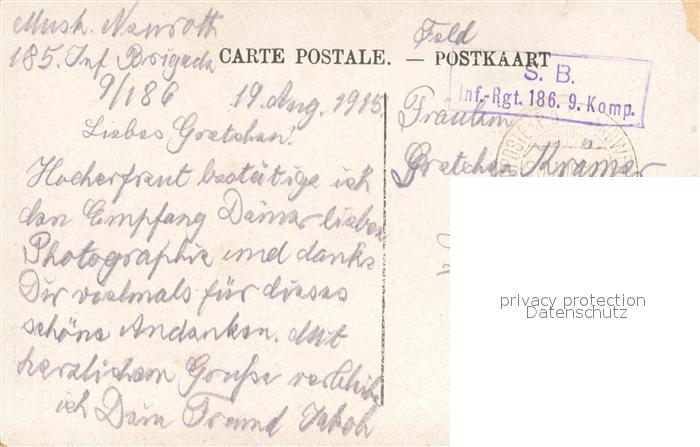 Musk. Neuroth
185. Inf Brigade
9/186 19. Aug. 1915
Liebes Gretchen!
Hocherfreut bestätige ich
den Empfang Deiner lieben
Photographie und danke
Dir vielmals für dieses
schöne Andenken. Mit
herzlichem Gruße verbleibe
ich Dein Freund Jakob
CARTE POSTALE. — POSTKAART
Feld
S. B.
Inf.-Rgt. 186. 9. Komp.
Fräulein
Gretchen Krämer
privacy protection
Datenschutz